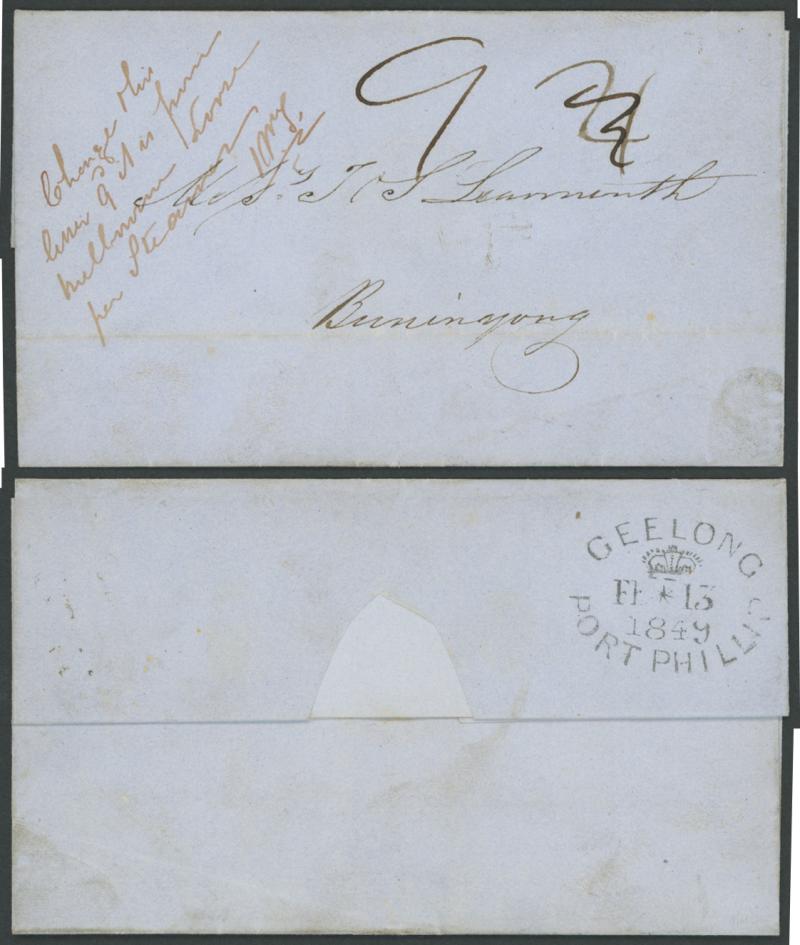 Change this
letter 9 it is from
Melbourne loose
per Steamer
9
Messrs. T & S Learmonth
Buninyong
GEELONG
FE * 13
1849
PORT PHILLIP